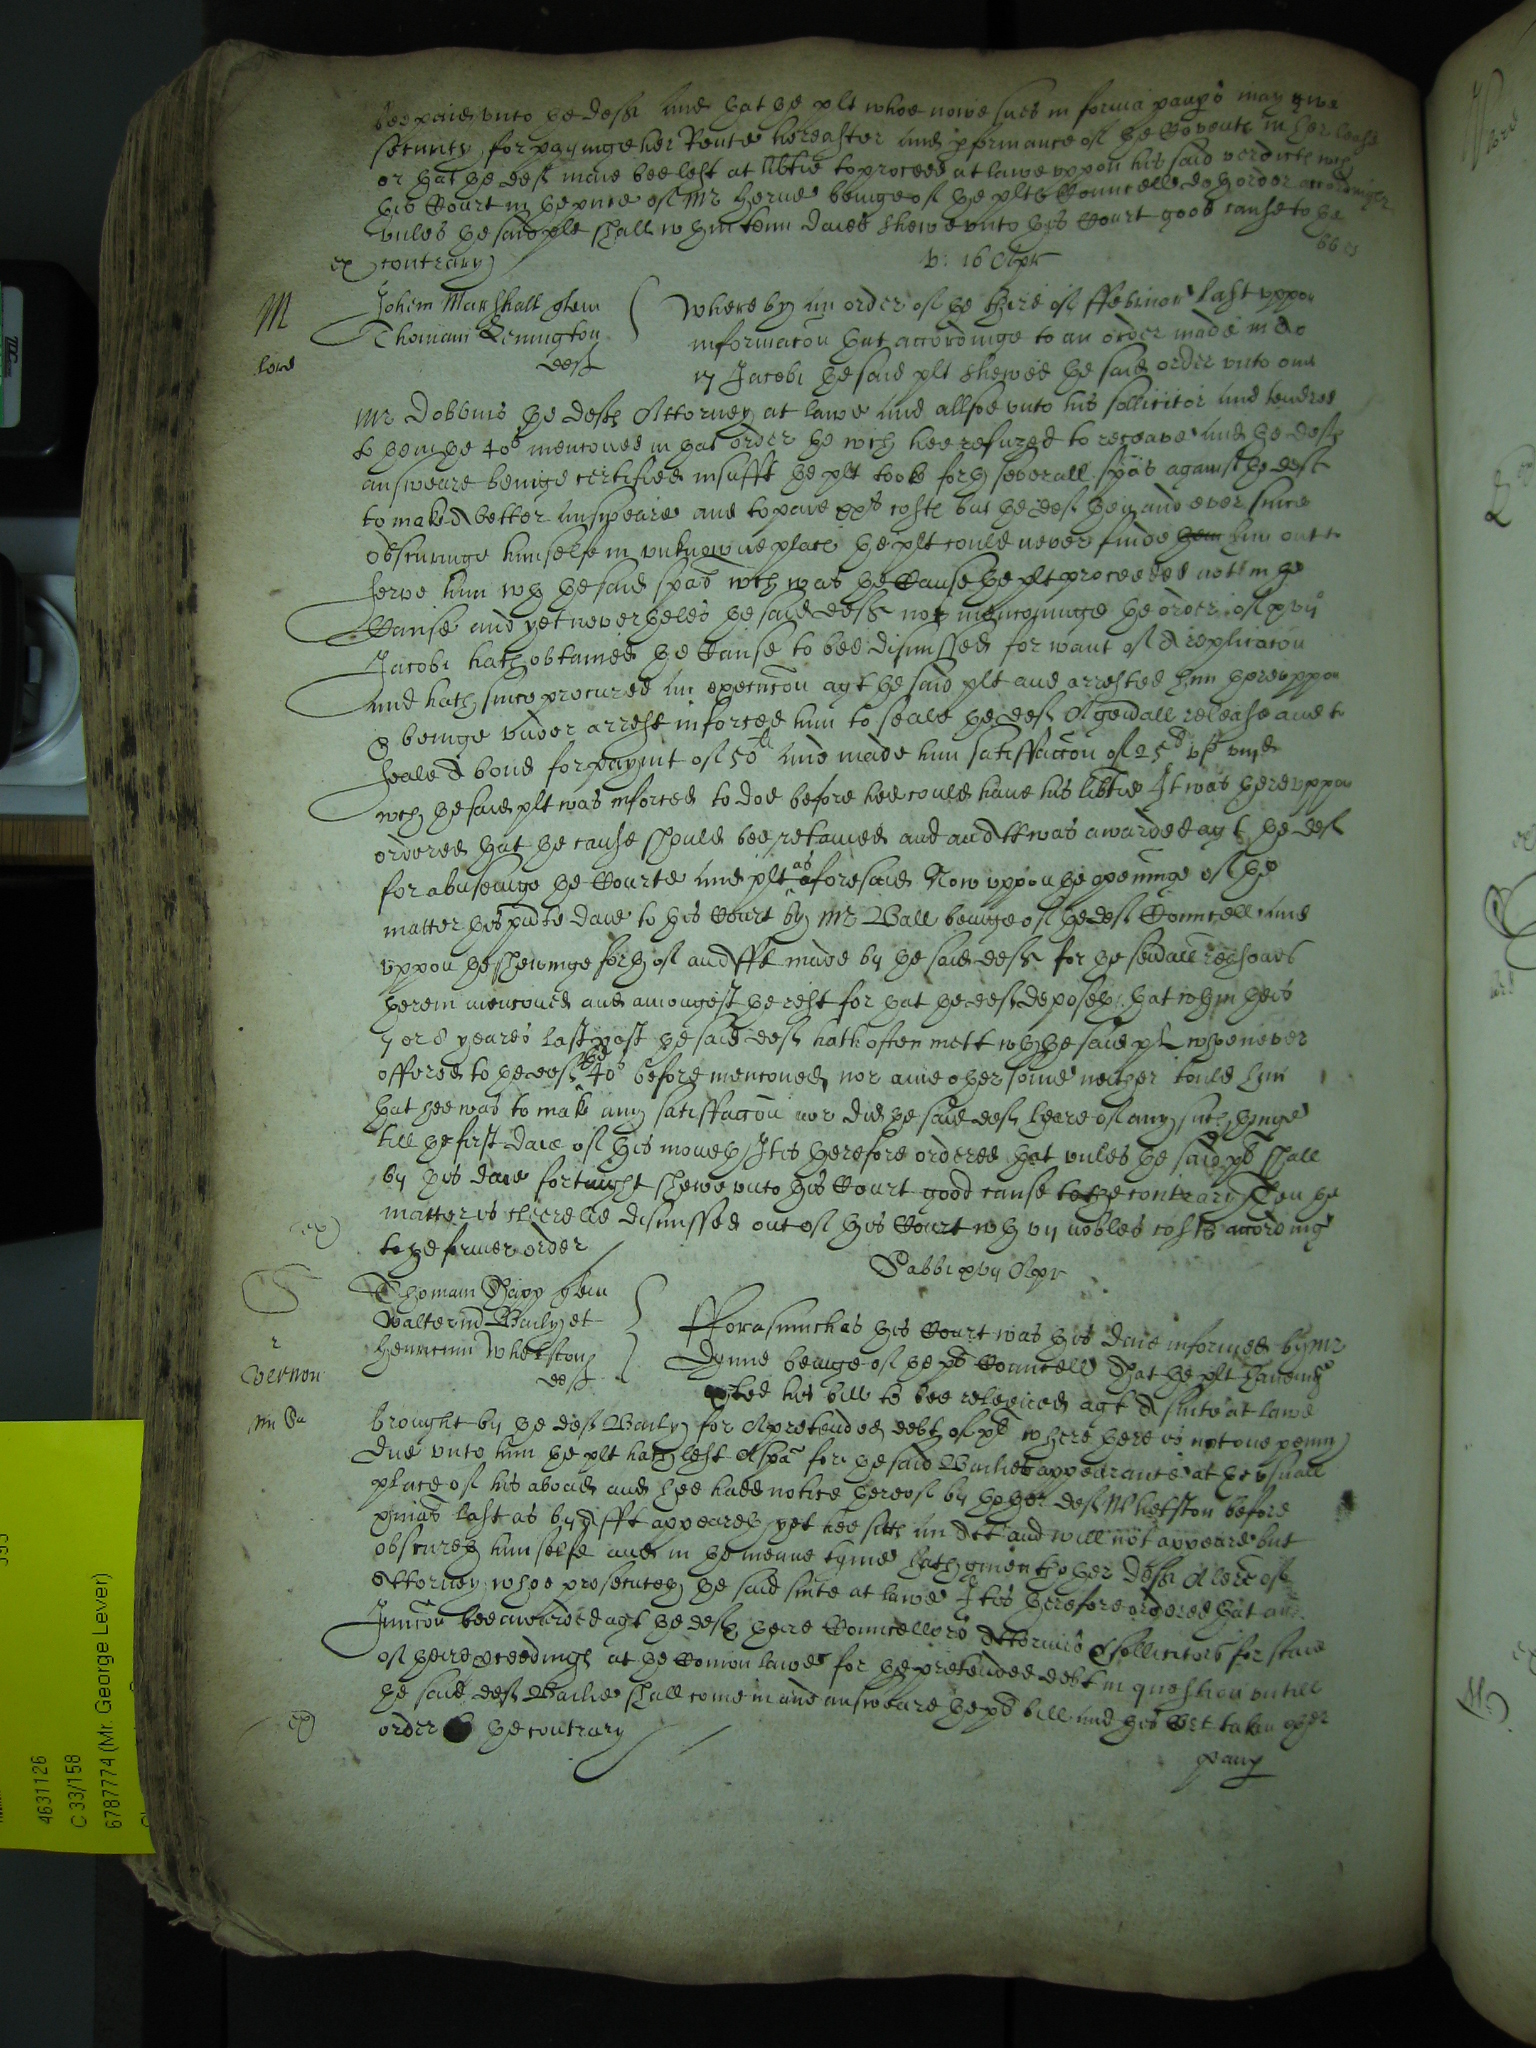 bee paied unto the deft And that the plt whoe nowe sues in forma paupis may give
securitie for payinge her Rente hereafter and pformance of the Covents in her lease
or that the deft maie bee left at libtie to proceed at lawe uppon his said verdict wch
this Court in the pnce of Mr Herne beinge of the plts Councell doth order accordinglie
unles the said plt shall wthin tenn daies shewe unto this Court good cause to the
ex contrary
v: 16 Apr
M
Johem Marshall quer
Thomam Lenington
deft
lowe
Where by an order of the third of ffebruar last uppon
informacon that accordinge to an order made in Ao
17 Jacobi the said plt shewed the said order unto one
Mr Dobbins the defts Attorney at lawe and allsoe unto his sollicitor and tendred
to them the 40s menconed in that order the wch hee refuzed to receave and the defts
answeare beinge certified insufft the plt took forth severall spas against the deft
to make A better answeare and to paie costs but the deft then and ever since
obscuringe himselfe in unknowne places the plt could never finde him out to
serve him wth the said spas wch was the Cause the plt proceeded not in the
Cause and yet neverthelesse the said deft not menconinge the order of xvii
Jacobi hath obtained the Cause to bee dismissed for want of A replicacon
and hath since procured an execucon agt the said plt and arrested him thereuppon
& beinge under arrest inforced him to seale the deft A genall release and to
seale A bond for paymt of 50 li and made him satisfaccon of 25
wch the said plt was inforced to doe before hee could have his libtie It was thereuppon
ordered that the cause should bee retained and an Att was awarded agt the deft
for abuseinge the Courte and plt as aforesaid Now uppon the openinge of the
matter this pnte daie to this Court by Mr Ball beinge of the defts Councell and
uppon the shewinge forth of an Afft made by the said deft for the sevall reasons
therein menconed and amongest the rest for that the deft deposeth that wthin theis
7 or 8 yeares last past the said deft hath often mett wth the said plt whoe never
offered to the deft the 40s before menconed nor anie other some neither tould him
that hee was to make any satisfaccon nor did the said deft heare of any such thinge
till the first daie of this moneth It is therefore ordered that unles the said plt shall
by this daie fortnight shewe unto this Court good cause to the contrary Then the
matter is cleerelie dismissed out of this Court wth vii nobles costs accordinge
ex to the former order
Sabbi xvii Apr
S
r
Vernon
Thomam quer
Walterum Baily et
Henricum Whetston
deft
fforasmuch as this Court was this daie informed by Mr
beinge of the plts Councell That the plt haveinge
his bill to bee releived agt A suite at lawe
brought by the deft Baily for A pretended debt of where there is not one penny
due unto him the plt hath left A spa for the said Bailies appearance at the usuall
place of his aboade and hee hadd notice thereof by thother deft Whetston before
last as by Afft appeareth yet hee sitts an Att and will not appeare but
obscureth himselfe and in the meane tyme hath given thother deft A lre of
Attorney whoe prosecuteth the said suite at lawe It is therefore ordered that an
Iniuncon bee awarded agt the defts theire Councellors Attornies & Sollicitors for staie
of theire proceedings at the Comon lawe for the pretended debt in question untill
the said deft Bailie shall come in and answeare the plts bill and this Cort take other
ex order to the contrary
4631126
C 33/158
6787774 (Mr. George Lever)